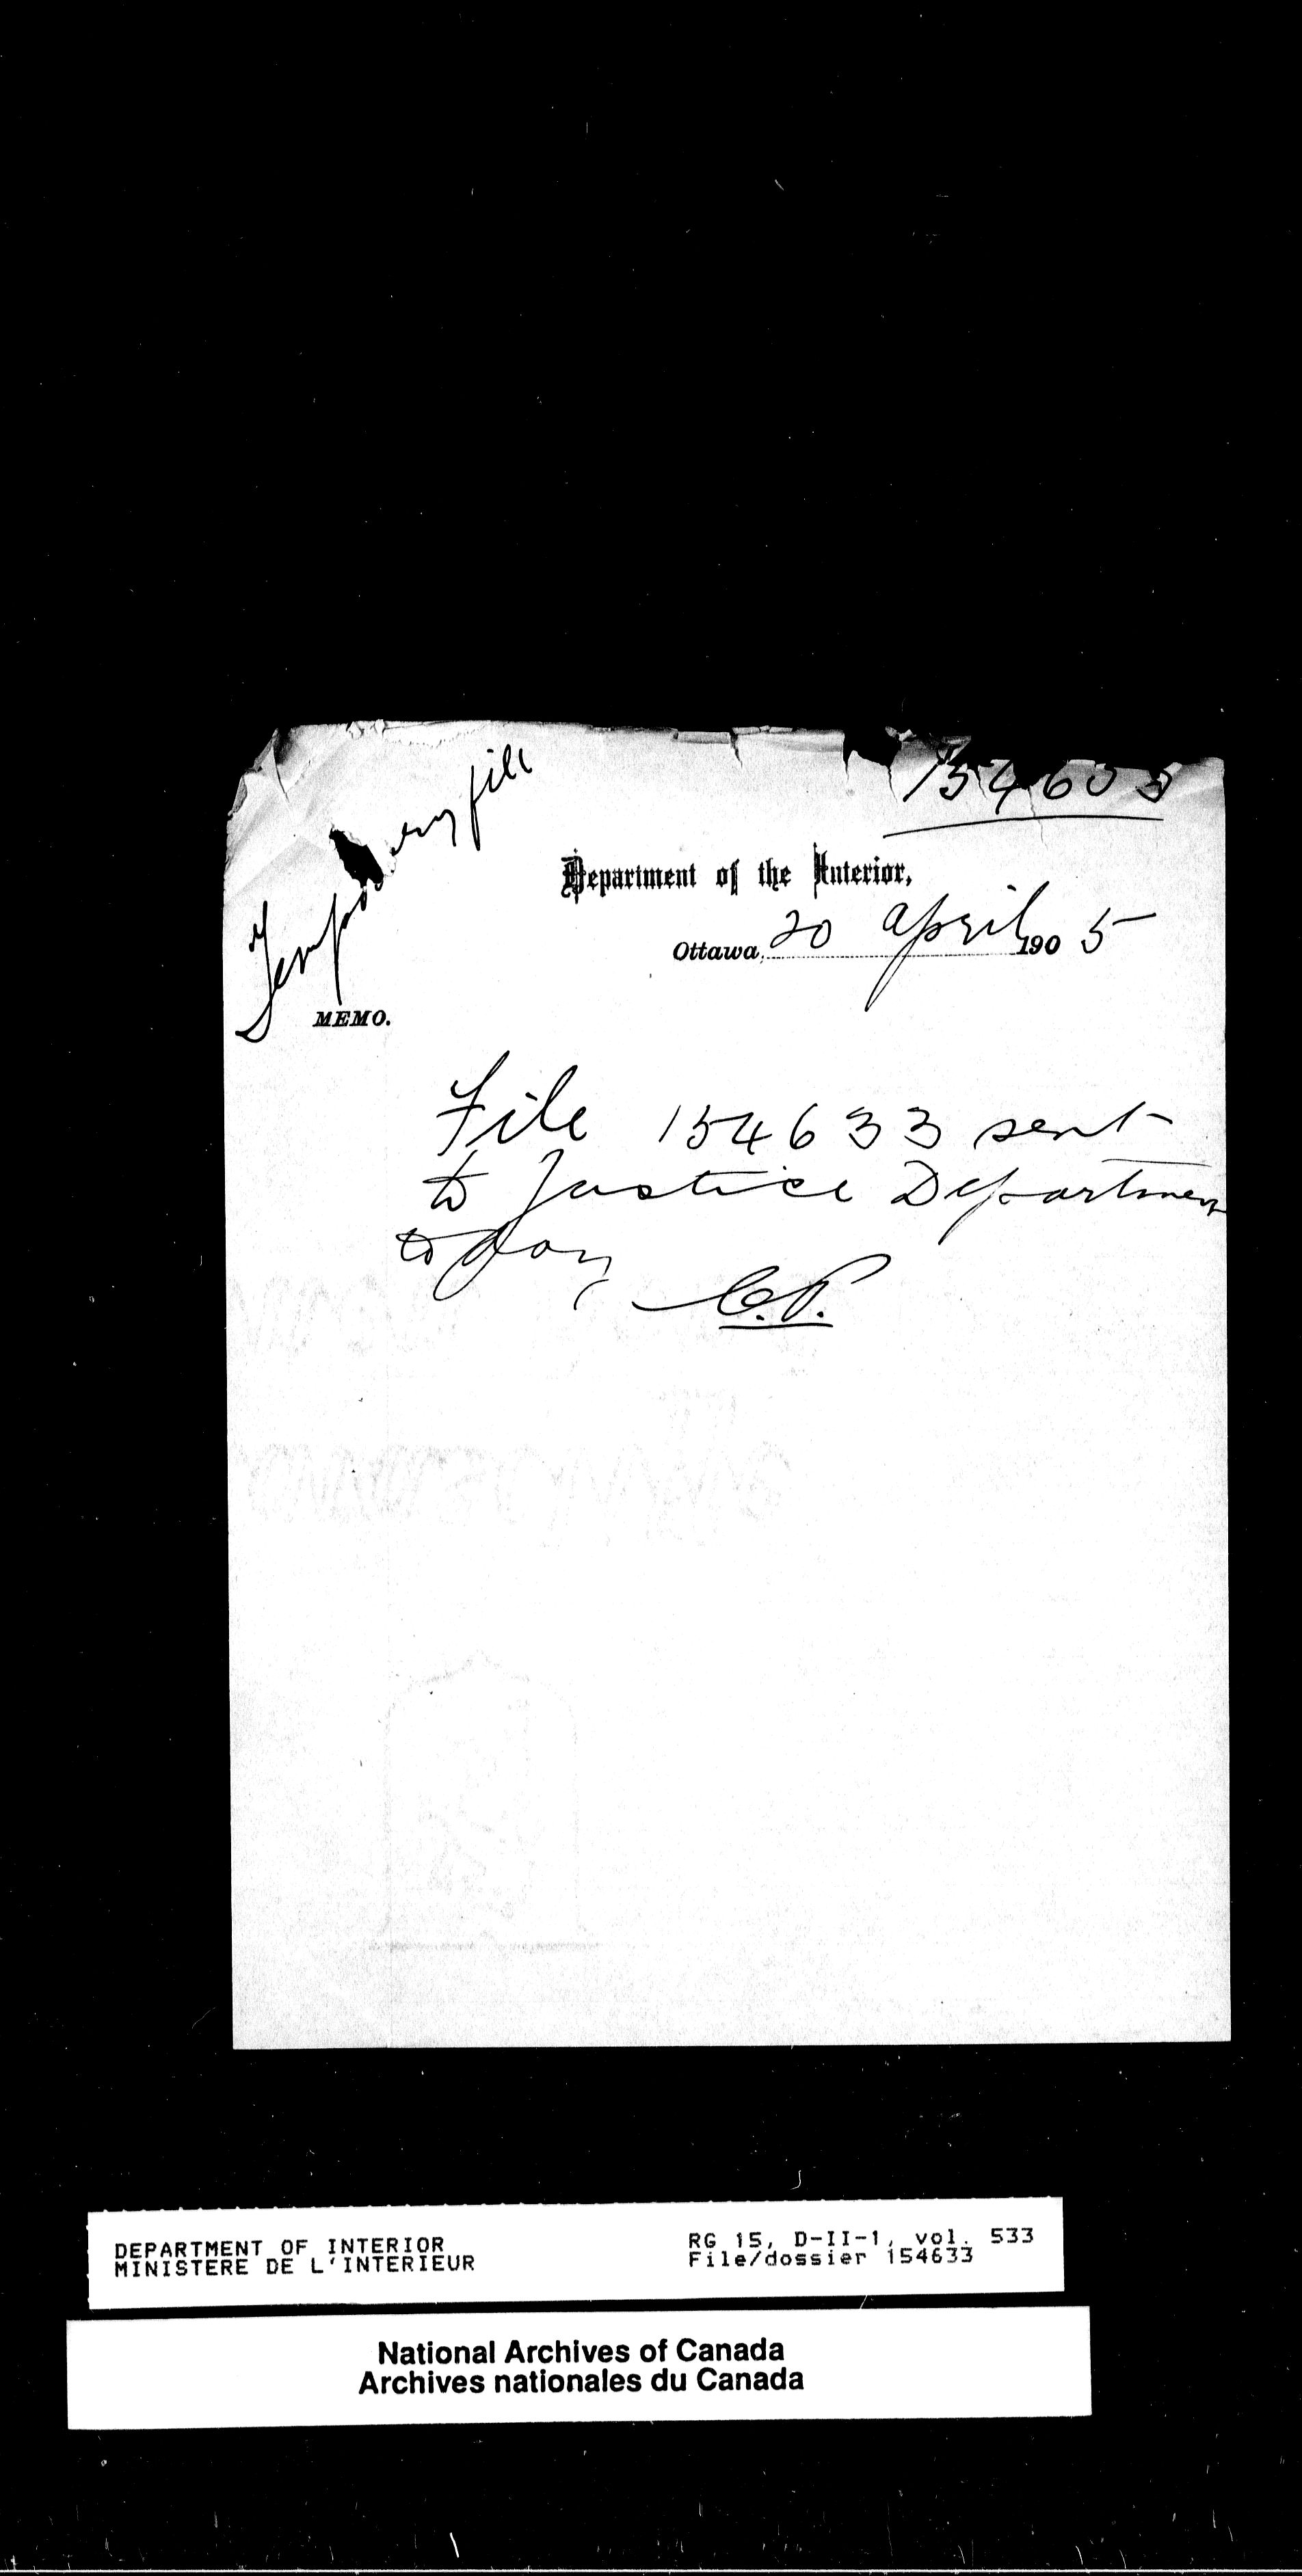 Temporary file
154633
Department of the Interior,
Ottawa, 20 April 1905
MEMO.
File 154633 sent
to Justice Department
today
C.P.
DEPARTMENT OF INTERIOR
MINISTERE DE L'INTERIEUR
RG 15, D-II-1, vol. 533
File/dossier 154633
National Archives of Canada
Archives nationales du Canada